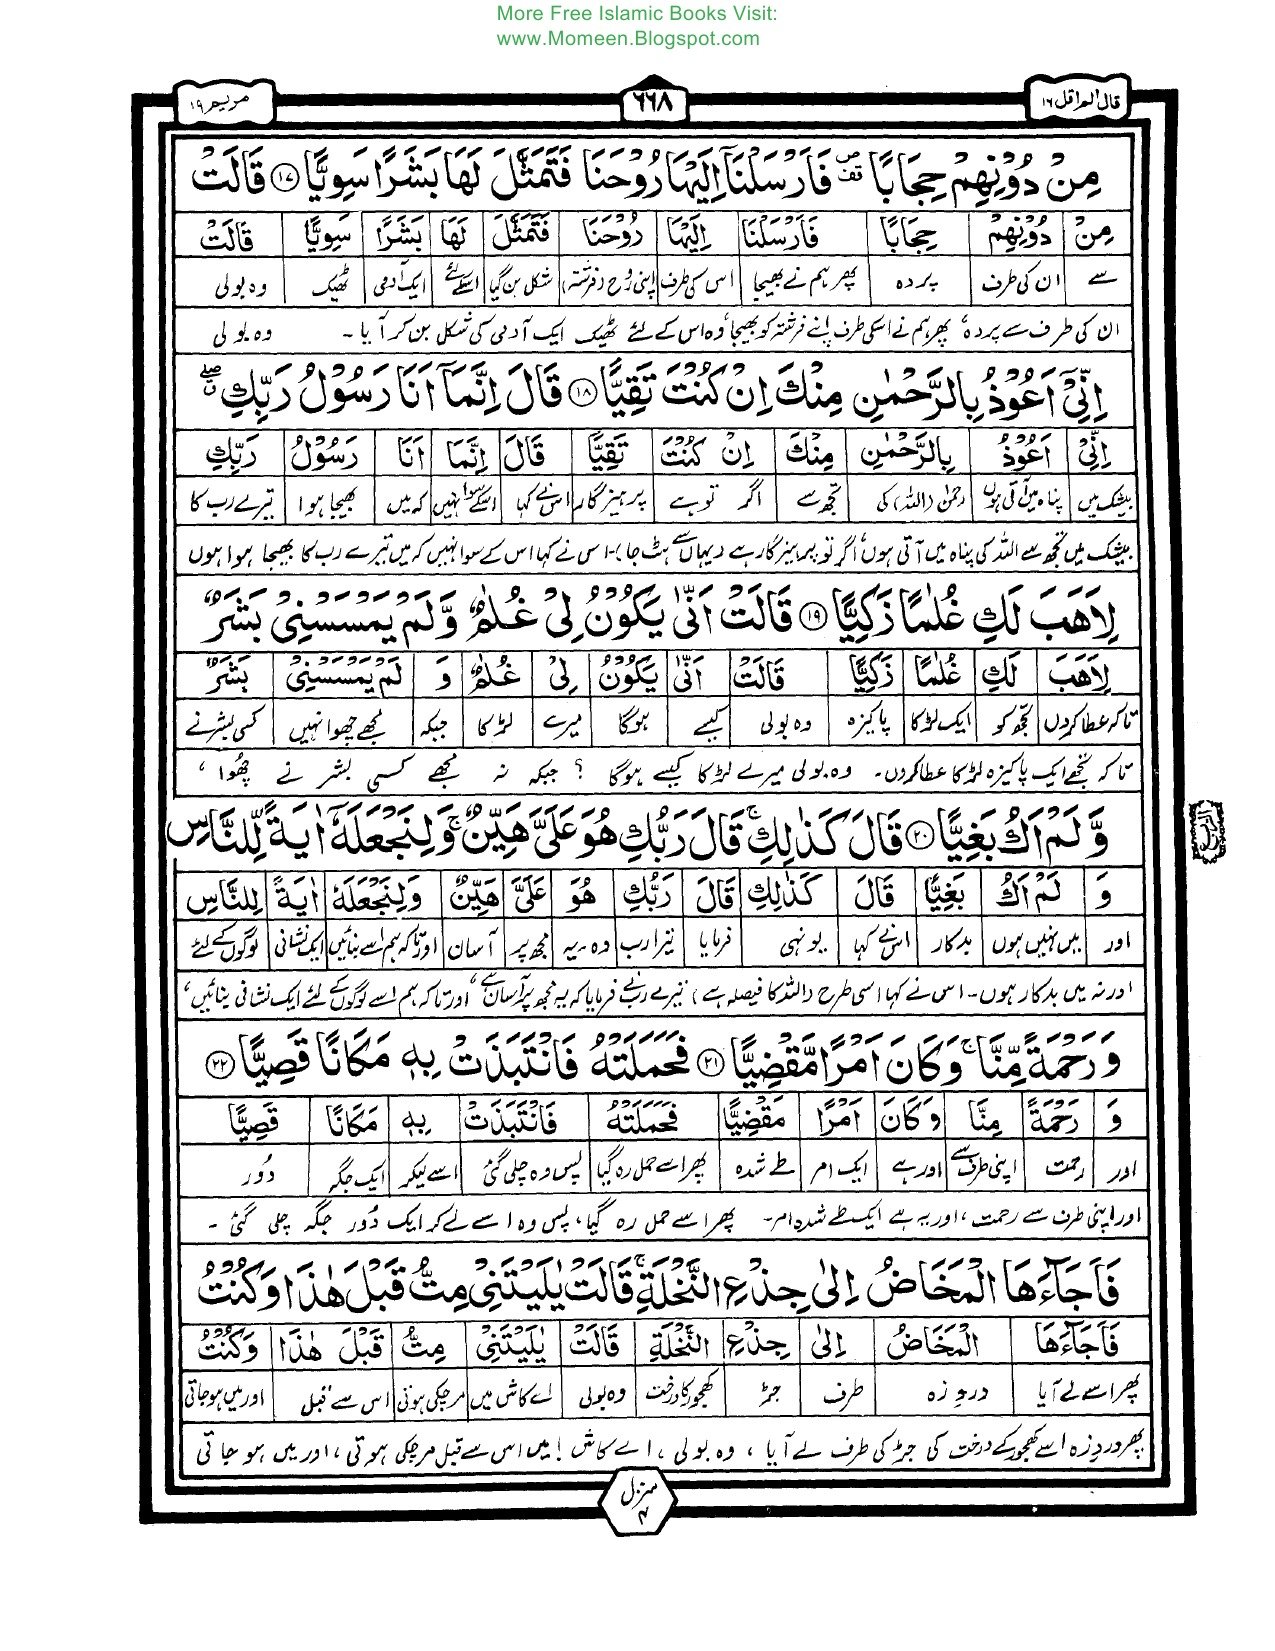 More Free Islamic Books Visit:
www.Momeen.Blogspot.com
قال الم اقل ١٦
٦٦٨
مریم ١٩
مِنْ دُوْنِهِمْ حِجَابًا ۪ فَاَرْسَلْنَاۤ اِلَيْهَا رُوْحَنَا فَتَمَثَّلَ لَهَا بَشَرًا سَوِيًّا ﴿١٧﴾ قَالَتْ
مِنْ دُوْنِهِمْ حِجَابًا فَاَرْسَلْنَا اِلَيْهَا رُوْحَنَا فَتَمَثَّلَ لَهَا بَشَرًا سَوِيًّا قَالَتْ
سے ان کی طرف پردہ پھر ہم نے بھیجا اس کی طرف اپنی روح (فرشتہ) شکل بن گیا اسکے لئے ایک آدمی ٹھیک وہ بولی
ان کی طرف سے پردہ، پھر ہم نے اسکی طرف اپنے فرشتہ کو بھیجا، وہ اس کے لئے ٹھیک ایک آدمی کی شکل بن کر آیا۔ وہ بولی
اِنِّيْۤ اَعُوْذُ بِالرَّحْمٰنِ مِنْكَ اِنْ كُنْتَ تَقِيًّا ﴿١٨﴾ قَالَ اِنَّمَاۤ اَنَا رَسُوْلُ رَبِّكِ
اِنِّيْ اَعُوْذُ بِالرَّحْمٰنِ مِنْكَ اِنْ كُنْتَ تَقِيًّا قَالَ اِنَّمَا اَنَا رَسُوْلُ رَبِّكِ
بیشک میں پناہ میں آتی ہوں رحمٰن (اللہ) کی تجھ سے اگر تو ہے پرہیزگار اس نے کہا اسکے سوا نہیں کہ میں بھیجا ہوا تیرے رب کا
بیشک میں تجھ سے اللہ کی پناہ میں آتی ہوں، اگر تو پرہیزگار ہے (یہاں سے ہٹ جا)۔ اس نے کہا اس کے سوا نہیں کہ میں تیرے رب کا بھیجا ہوا ہوں
لِاَهَبَ لَكِ غُلٰمًا زَكِيًّا ﴿١٩﴾ قَالَتْ اَنّٰى يَكُوْنُ لِيْ غُلٰمٌ وَّلَمْ يَمْسَسْنِيْ بَشَرٌ
لِاَهَبَ لَكِ غُلٰمًا زَكِيًّا قَالَتْ اَنّٰى يَكُوْنُ لِيْ غُلٰمٌ وَ لَمْ يَمْسَسْنِيْ بَشَرٌ
تاکہ عطا کردوں تجھ کو ایک لڑکا پاکیزہ وہ بولی کیسے ہوگا میرے لڑکا جبکہ مجھے چھوا نہیں کسی بشر نے
تاکہ تجھے ایک پاکیزہ لڑکا عطا کردوں۔ وہ بولی میرے لڑکا کیسے ہوگا؟ جبکہ نہ مجھے کسی بشر نے چھوا،
وَّلَمْ اَكُ بَغِيًّا ﴿٢٠﴾ قَالَ كَذٰلِكِ ۚ قَالَ رَبُّكِ هُوَ عَلَيَّ هَيِّنٌ ۚ وَلِنَجْعَلَهٗۤ اٰيَةً لِّلنَّاسِ
وَ لَمْ اَكُ بَغِيًّا قَالَ كَذٰلِكِ قَالَ رَبُّكِ هُوَ عَلَيَّ هَيِّنٌ وَلِنَجْعَلَهٗ اٰيَةً لِلنَّاسِ
اور میں نہیں ہوں بدکار اس نے کہا یونہی فرمایا تیرا رب وہ۔ یہ مجھ پر آسان اور تاکہ ہم اسے بنائیں ایک نشانی لوگوں کے لئے
اور نہ میں بدکار ہوں۔ اس نے کہا اسی طرح (اللہ کا فیصلہ ہے) تیرے رب نے فرمایا کہ یہ مجھ پر آسان ہے، اور تاکہ ہم اسے لوگوں کے لئے ایک نشانی بنائیں،
وَرَحْمَةً مِّنَّا ۚ وَكَانَ اَمْرًا مَّقْضِيًّا ﴿٢١﴾ فَحَمَلَتْهُ فَانْتَبَذَتْ بِهٖ مَكَانًا قَصِيًّا ﴿٢٢﴾
وَ رَحْمَةً مِنَّا وَكَانَ اَمْرًا مَقْضِيًّا فَحَمَلَتْهُ فَانْتَبَذَتْ بِهٖ مَكَانًا قَصِيًّا
اور رحمت اپنی طرف سے اور ہے ایک امر طے شدہ پھر اسے حمل رہ گیا پس وہ چلی گئی اسے لیکر ایک جگہ دُور
اور اپنی طرف سے رحمت، اور یہ ہے ایک طے شدہ امر۔ پھر اسے حمل رہ گیا، پس وہ اسے لے کر ایک دُور جگہ چلی گئی۔
فَاَجَآءَهَا الْمَخَاضُ اِلٰى جِذْعِ النَّخْلَةِ ۚ قَالَتْ يٰلَيْتَنِيْ مِتُّ قَبْلَ هٰذَا وَكُنْتُ
فَاَجَآءَهَا الْمَخَاضُ اِلٰى جِذْعِ النَّخْلَةِ قَالَتْ يٰلَيْتَنِيْ مِتُّ قَبْلَ هٰذَا وَكُنْتُ
پھر اسے لے آیا دردِ زہ طرف جڑ کھجور کا درخت وہ بولی اے کاش میں مرچکی ہوتی اس سے قبل اور میں ہوجاتی
پھر دردِ زہ اسے کھجور کے درخت کی جڑ کی طرف لے آیا، وہ بولی، اے کاش! میں اس سے قبل مرچکی ہوتی، اور میں ہو جاتی
منزل
٤